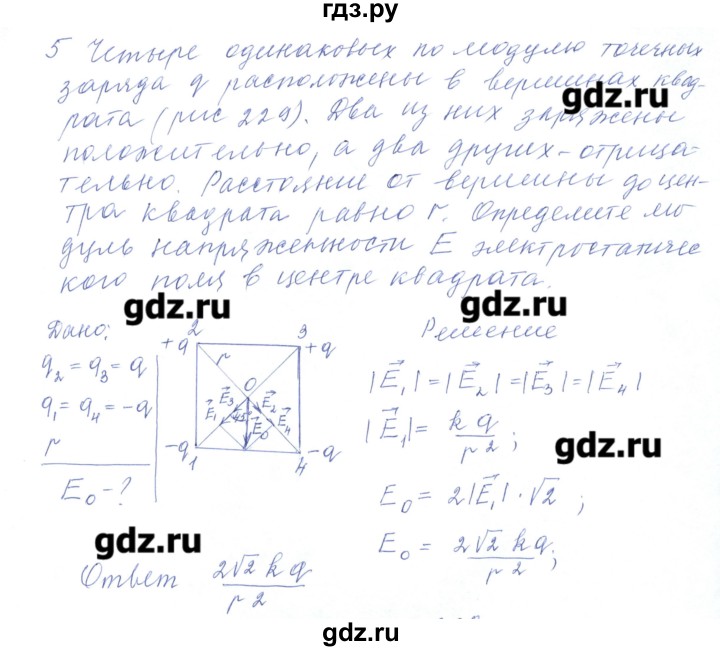 гдз.ру
5 Четыре одинаковых по модулю точечных
заряда q расположены в вершинах квад-
рата (рис 229). Два из них заряжены
положительно, а два других - отрица-
тельно. Расстояние от вершины до цен-
тра квадрата равно r. Определите мо
дуль напряженности E электростатичес
кого поля в центре квадрата.
gdz.ru
gdz.ru
gdz.ru
Дано:
q₂ = q₃ = q
q₁ = q₄ = -q
r
E₀ - ?
+q 2 3 +q
r
O
E⃗₁ E⃗₃ 45° E⃗₀ E⃗₂ E⃗₄
-q 1 4 -q
Решение
|E⃗₁| = |E⃗₂| = |E⃗₃| = |E⃗₄|
|E⃗₁| = kq / r²;
gdz.ru
E₀ = 2|E⃗₁| · √2 ;
E₀ = 2√2 kq / r²;
gdz.ru
Ответ 2√2 kq / r²
gdz.ru
gdz.ru